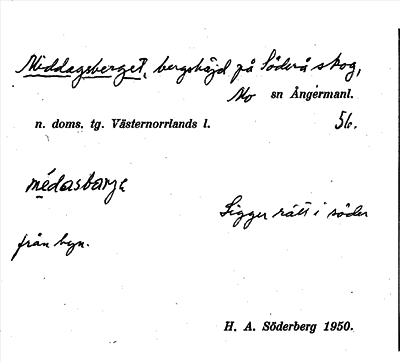 Middagsberget, bergshöjd på Söderå skog,
Mo sn Ångermanl.
n. doms. tg. Västernorrlands l. 56.
médasbarje
Ligger rätt i söder
från byn.
H. A. Söderberg 1950.